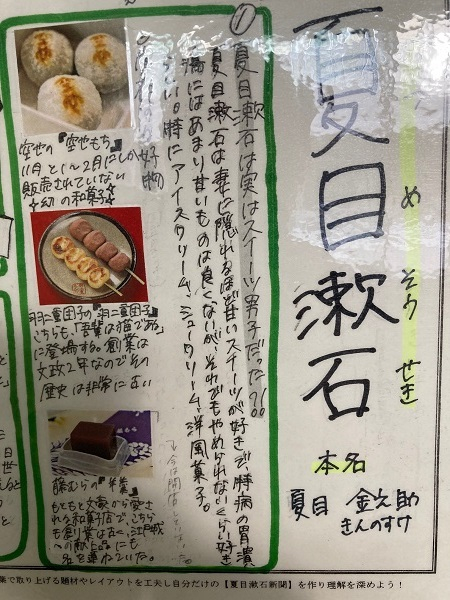 夏目漱石
め
そう
せき
本名
夏目 金之助
きんのすけ
① 夏目漱石は実はスイーツ男子だった!?
夏目漱石は妻に隠れるほど甘いスイーツが好きで、持病の胃潰
瘍にはあまり甘いものは良くないが、それでもやめられないくらい好き
らしい。特にアイスクリーム、シュークリーム、洋風菓子。
好物
空也の『空也もち』
11月と1〜2月にしか
販売されていない
幻の和菓子☆
羽二重団子の『羽二重団子』
こちらも、「吾輩は猫である」
に登場する。創業は
文政2年なのでその
歴史は非常に古い
藤むらの『羊羹』
もともと文豪から愛さ
れる和菓子店で、こちら
も創業は古く、江戸城
への献上品にも
名を連ねていた。
業で取り上げる題材やレイアウトを工夫し自分だけの【夏目漱石新聞】を作り理解を深めよう!